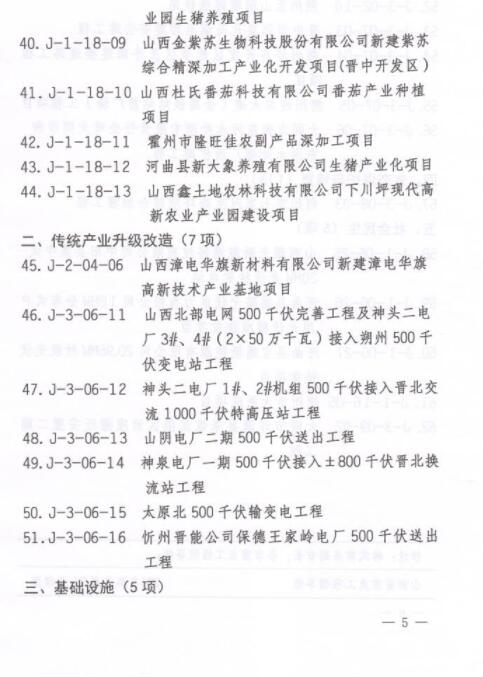 业园生猪养殖项目
40. J-1-18-09 山西金紫苏生物科技股份有限公司新建紫苏
综合精深加工产业化开发项目(晋中开发区)
41. J-1-18-10 山西杜氏番茄科技有限公司番茄产业种植
项目
42. J-1-18-11 霍州市隆旺佳农副产品深加工项目
43. J-1-18-12 河曲县新大象养殖有限公司生猪产业化项目
44. J-1-18-13 山西鑫土地农林科技有限公司下川坪现代高
新农业产业园建设项目
二、传统产业升级改造（7项）
45. J-2-04-06 山西漳电华旗新材料有限公司新建漳电华旗
高新技术产业基地项目
46. J-3-06-11 山西北部电网500千伏完善工程及神头二电
厂3#、4#（2×50万千瓦）接入朔州500千
伏变电站工程
47. J-3-06-12 神头二电厂1#、2#机组500千伏接入晋北交
流1000千伏特高压站工程
48. J-3-06-13 山阴电厂二期500千伏送出工程
49. J-3-06-14 神泉电厂一期500千伏接入±800千伏晋北换
流站工程
50. J-3-06-15 太原北500千伏输变电工程
51. J-3-06-16 忻州晋能公司保德王家岭电厂500千伏送出
工程
三、基础设施（5项）
— 5 —